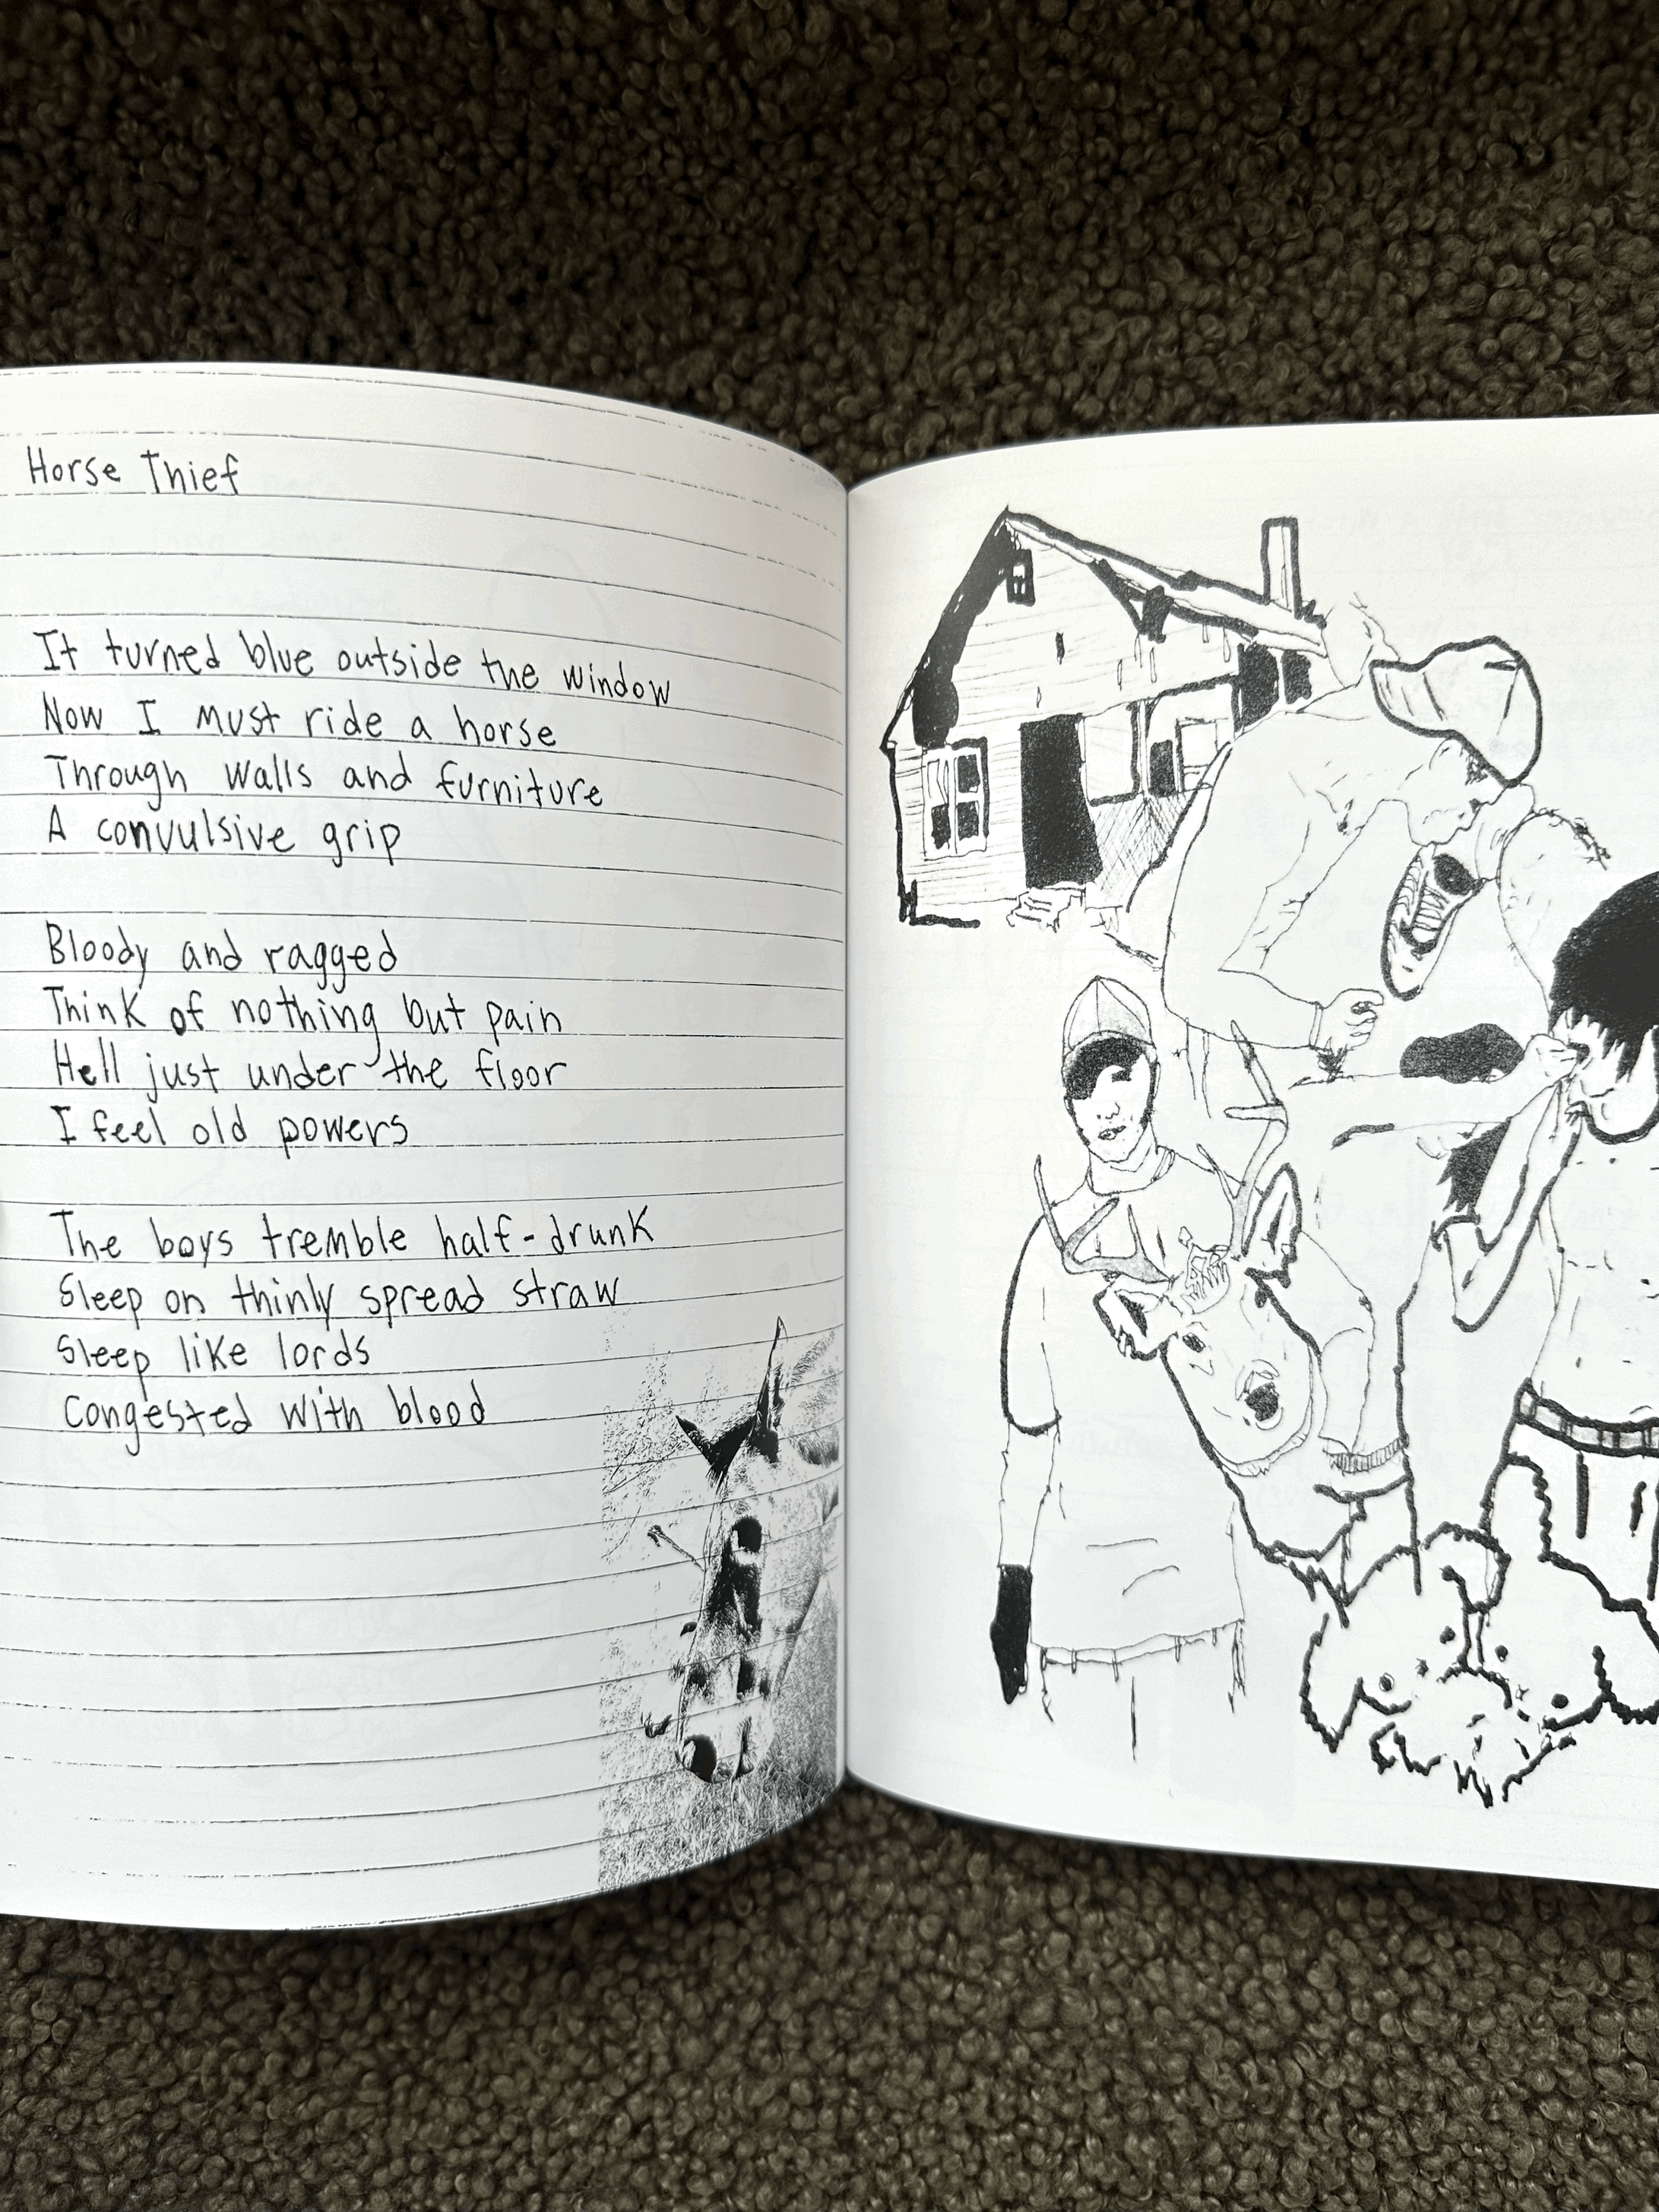 Horse Thief
It turned blue outside the window
Now I must ride a horse
Through walls and furniture
A convulsive grip
Bloody and ragged
Think of nothing but pain
Hell just under the floor
I feel old powers
The boys tremble half-drunk
Sleep on thinly spread straw
Sleep like lords
Congested with blood